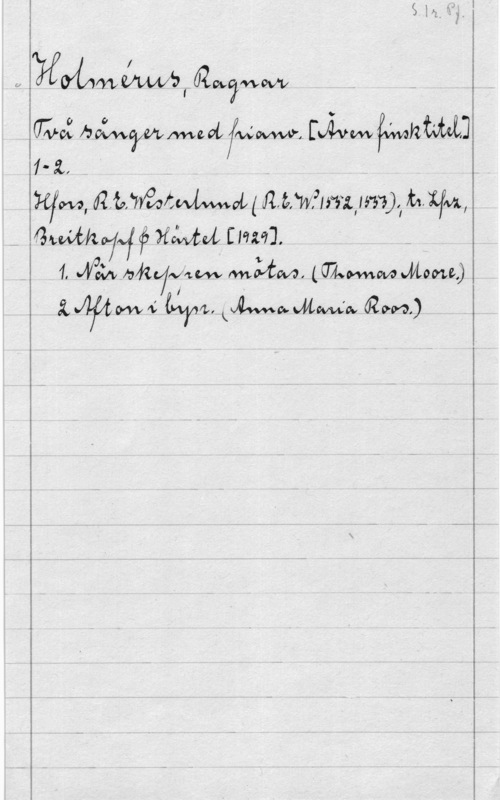 S. 1 r. Pf.
Holmérus, Ragnar
Två sånger med piano. [Även finsk titel.]
1-2.
Hfors, R.E. Westerlund (R.E.W. 1552, 1553); tr. Lpz,
Breitkopf & Härtel [1929].
1. När skeppen mötas. (Thomas Moore.)
2. Afton i byn. (Anna Maria Roos.)